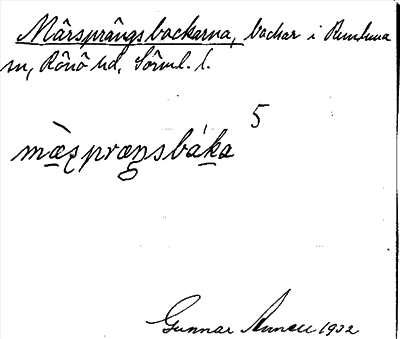 Mårsprångsbackarna, backar i Runtuna
sn, Rönö hd, Sörml. l.
5
mæ̀spræŋsbáka
Gunnar 1932